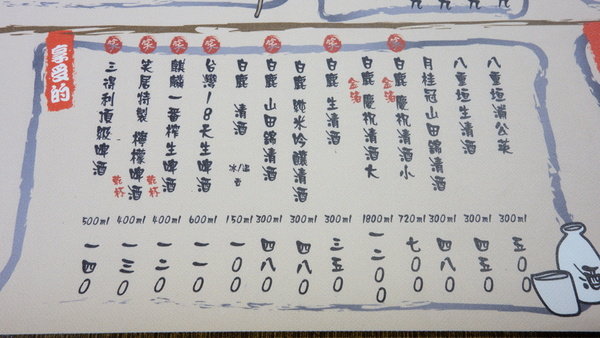 享受的
笑
三得利頂級啤酒
500ml
一四0
笑
笑居特製 檸檬啤酒
乾杯
400ml
一三0
笑
麒麟一番榨生啤酒
乾杯
400ml
一二0
笑
台灣18天生啤酒
600ml
一一0
白鹿 清酒
150ml
一00
笑
白鹿 山田錦清酒
300ml
四八0
白鹿 純米吟釀清酒
300ml
四八0
笑
白鹿 生清酒
300ml
三五0
白鹿 慶祝清酒大
金箔
1800ml
一二00
笑
白鹿 慶祝清酒小
金箔
720ml
七00
月桂冠山田錦清酒
300ml
四八0
八重垣生清酒
300ml
四五0
八重垣蒲公英
300ml
五00
酒